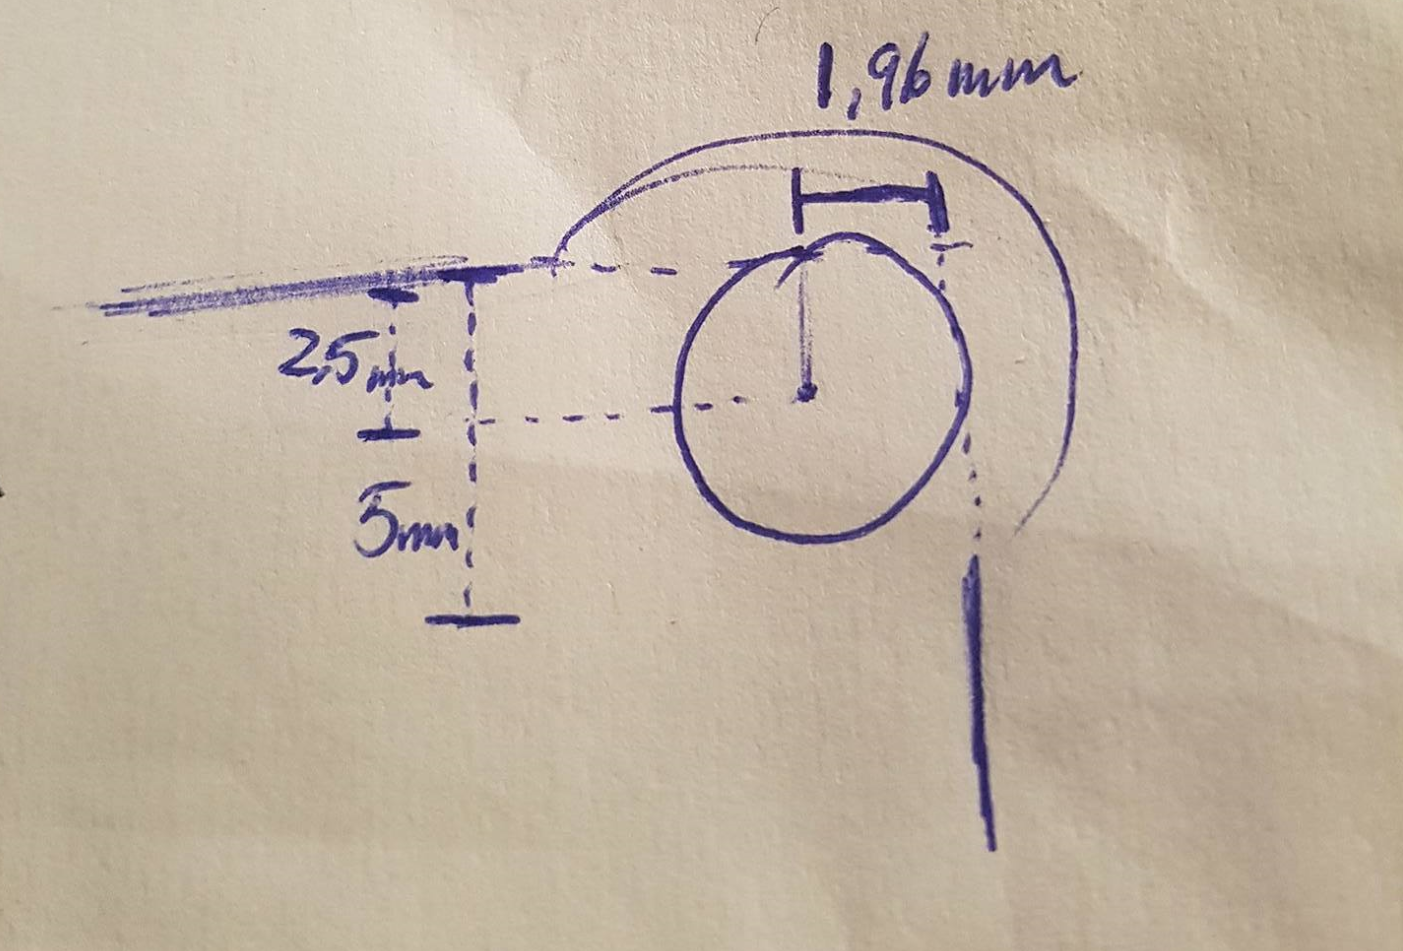 1,96mm
2,5mm
5mm